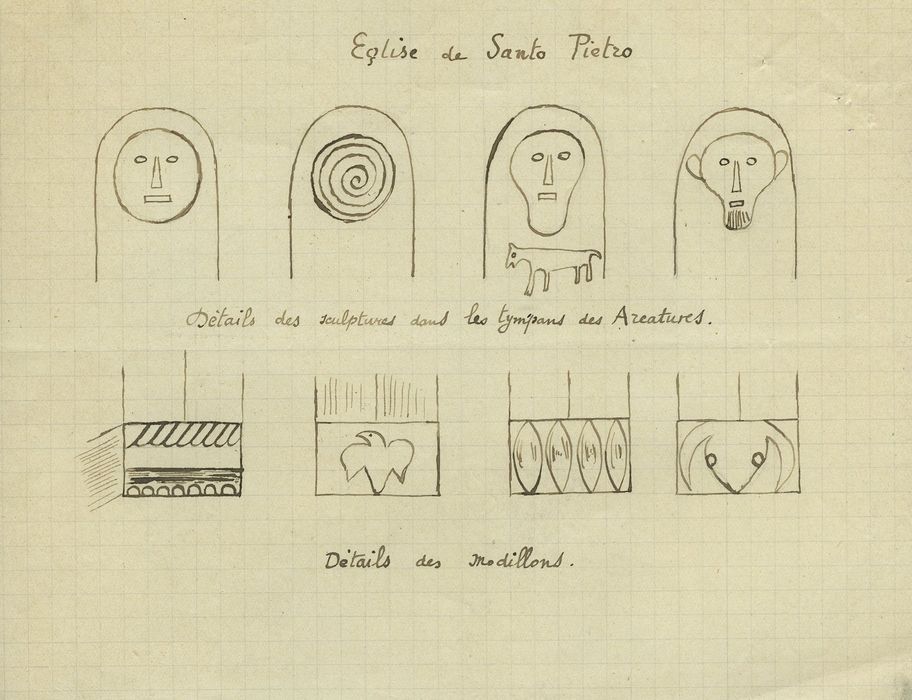 Eglise de Santo Pietro
Détails des sculptures dans les tympans des Arcatures.
Détails des modillons.